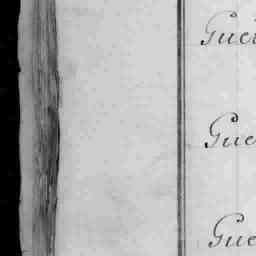 Gue
Gue
Gue